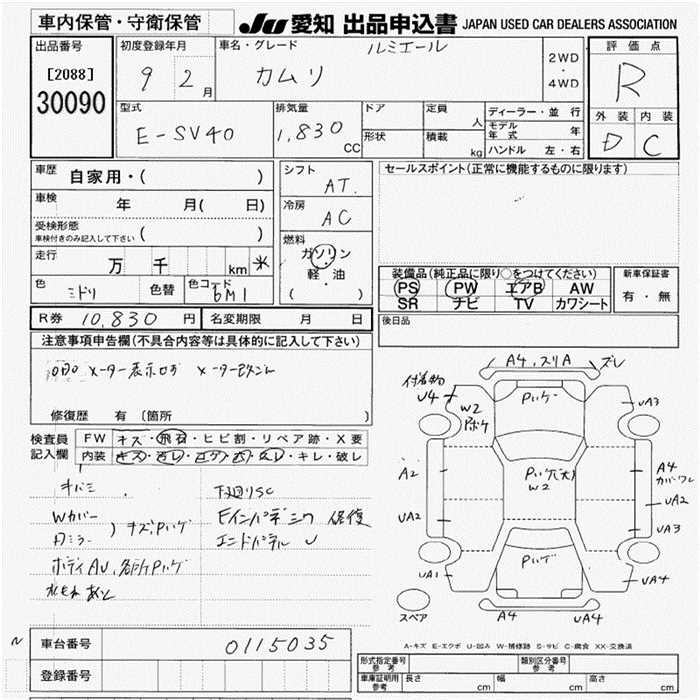 車内保管・守衛保管
JU 愛知 出品申込書 JAPAN USED CAR DEALERS ASSOCIATION
出品番号
[2088]
30090
初度登録年月
9 2月
車名・グレード
ルミエール
カムリ
2WD
・
4WD
評価点
R
外装 内装
D C
型式
E-SV40
排気量
1,830 CC
ドア
形状
定員 人
積載 kg
ディーラー・並行
モデル年式 年
ハンドル 左・右
車歴
自家用・( )
車検 年 月( 日)
受検形態
車検付きのみ記入して下さい ( )
走行 万 千 km 米
色 ミドリ 色替 色コード 6M1
シフト
AT.
冷房
AC
燃料
ガソリン
・
軽・油
( )
セールスポイント(正常に機能するものに限ります)
装備品(純正品に限り○をつけてください)
PS PW エアB AW
SR ナビ TV カワシート
新車保証書
有・無
R券 10,830 円 名変期限 月 日
後日品
注意事項申告欄(不具合内容等は具体的に記入して下さい)
メーター表示
修復歴 有 (箇所 )
検査員記入欄
FW キズ・飛石・ヒビ割・リペア跡・X要
内装 ・キレ・破レ
キバミ
Wカバー
Wミラー
キズ、Pハゲ
ボディAU、各所Pハゲ
下廻りSC
Fインパネミワ 修復
エンドパネル U
A4,スリA ズレ
付着物
U4
W2
Pボケ
Pハゲ
UA3
A2
Pハゲ(大)
W2
A4
カバーワレ
UA2
UA2
UA3
Pハゲ
UA1
UA4
スペア
A4
UA4
A-キズ E-エクボ U-凹み W-補修跡 S-サビ C-腐食 XX-交換済
N
車台番号 0115035
登録番号
形式指定番号 参考
類別区分番号 参考
車庫証明用 参考 長さ cm 幅 cm 高さ cm